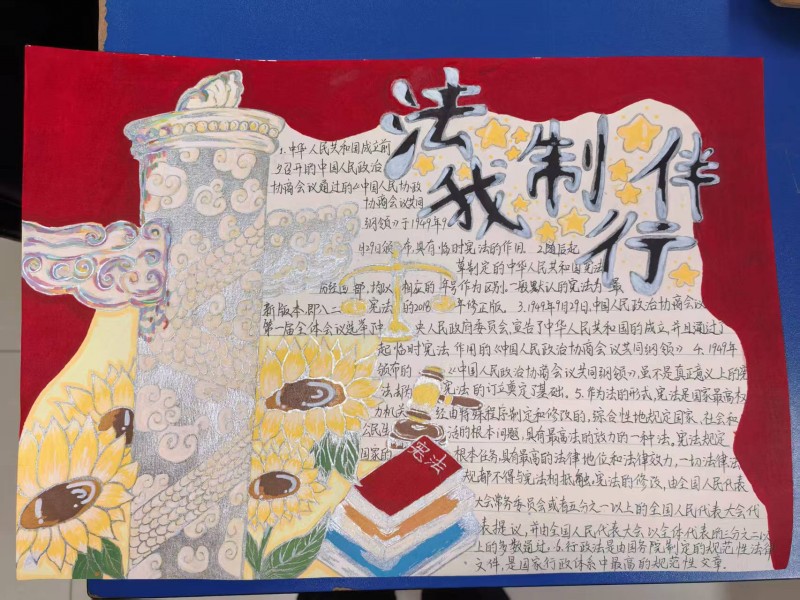 法制伴
我行
1、中华人民共和国成立前
夕召开的中国人民政治
协商会议通过的《中国人民协政
协商会议共同
纲领》于1949年9
月29日颁布,具有临时宪法的作用. 2.随后起
草制定的中华人民共和国宪法
历经四部,均以相应的年号作为区别,一般默认的宪法为最
新版本,即八二宪法的2018年修正版. 3.1949年9月29日,中国人民政治协商会议
第一届全体会议选举了中央人民政府委员会,宣告了中华人民共和国的成立,并且通过了
起临时宪法作用的《中国人民政治协商会议共同纲领》 4.1949年
颁布的《中国人民政治协商会议共同纲领》,虽不是真正意义上的宪
法却为宪法的订立奠定了基础. 5.作为法的形式,宪法是国家最高权
力机关经由特殊程序制定和修改的,综合性地规定国家、社会和
公民生活的根本问题,具有最高法的效力的一种法,宪法规定
国家的根本任务,具有最高的法律地位和法律效力,一切法律、法
规都不得与宪法相抵触,宪法的修改,由全国人民代表
大会常务委员会或者五分之一以上的全国人民代表大会代
表提议,并由全国人民代表大会以全体代表的三分之二以
上的多数通过. 6.行政法是由国务院制定的规范性法律
文件,是国家行政体系中最高的规范性文章.
宪法